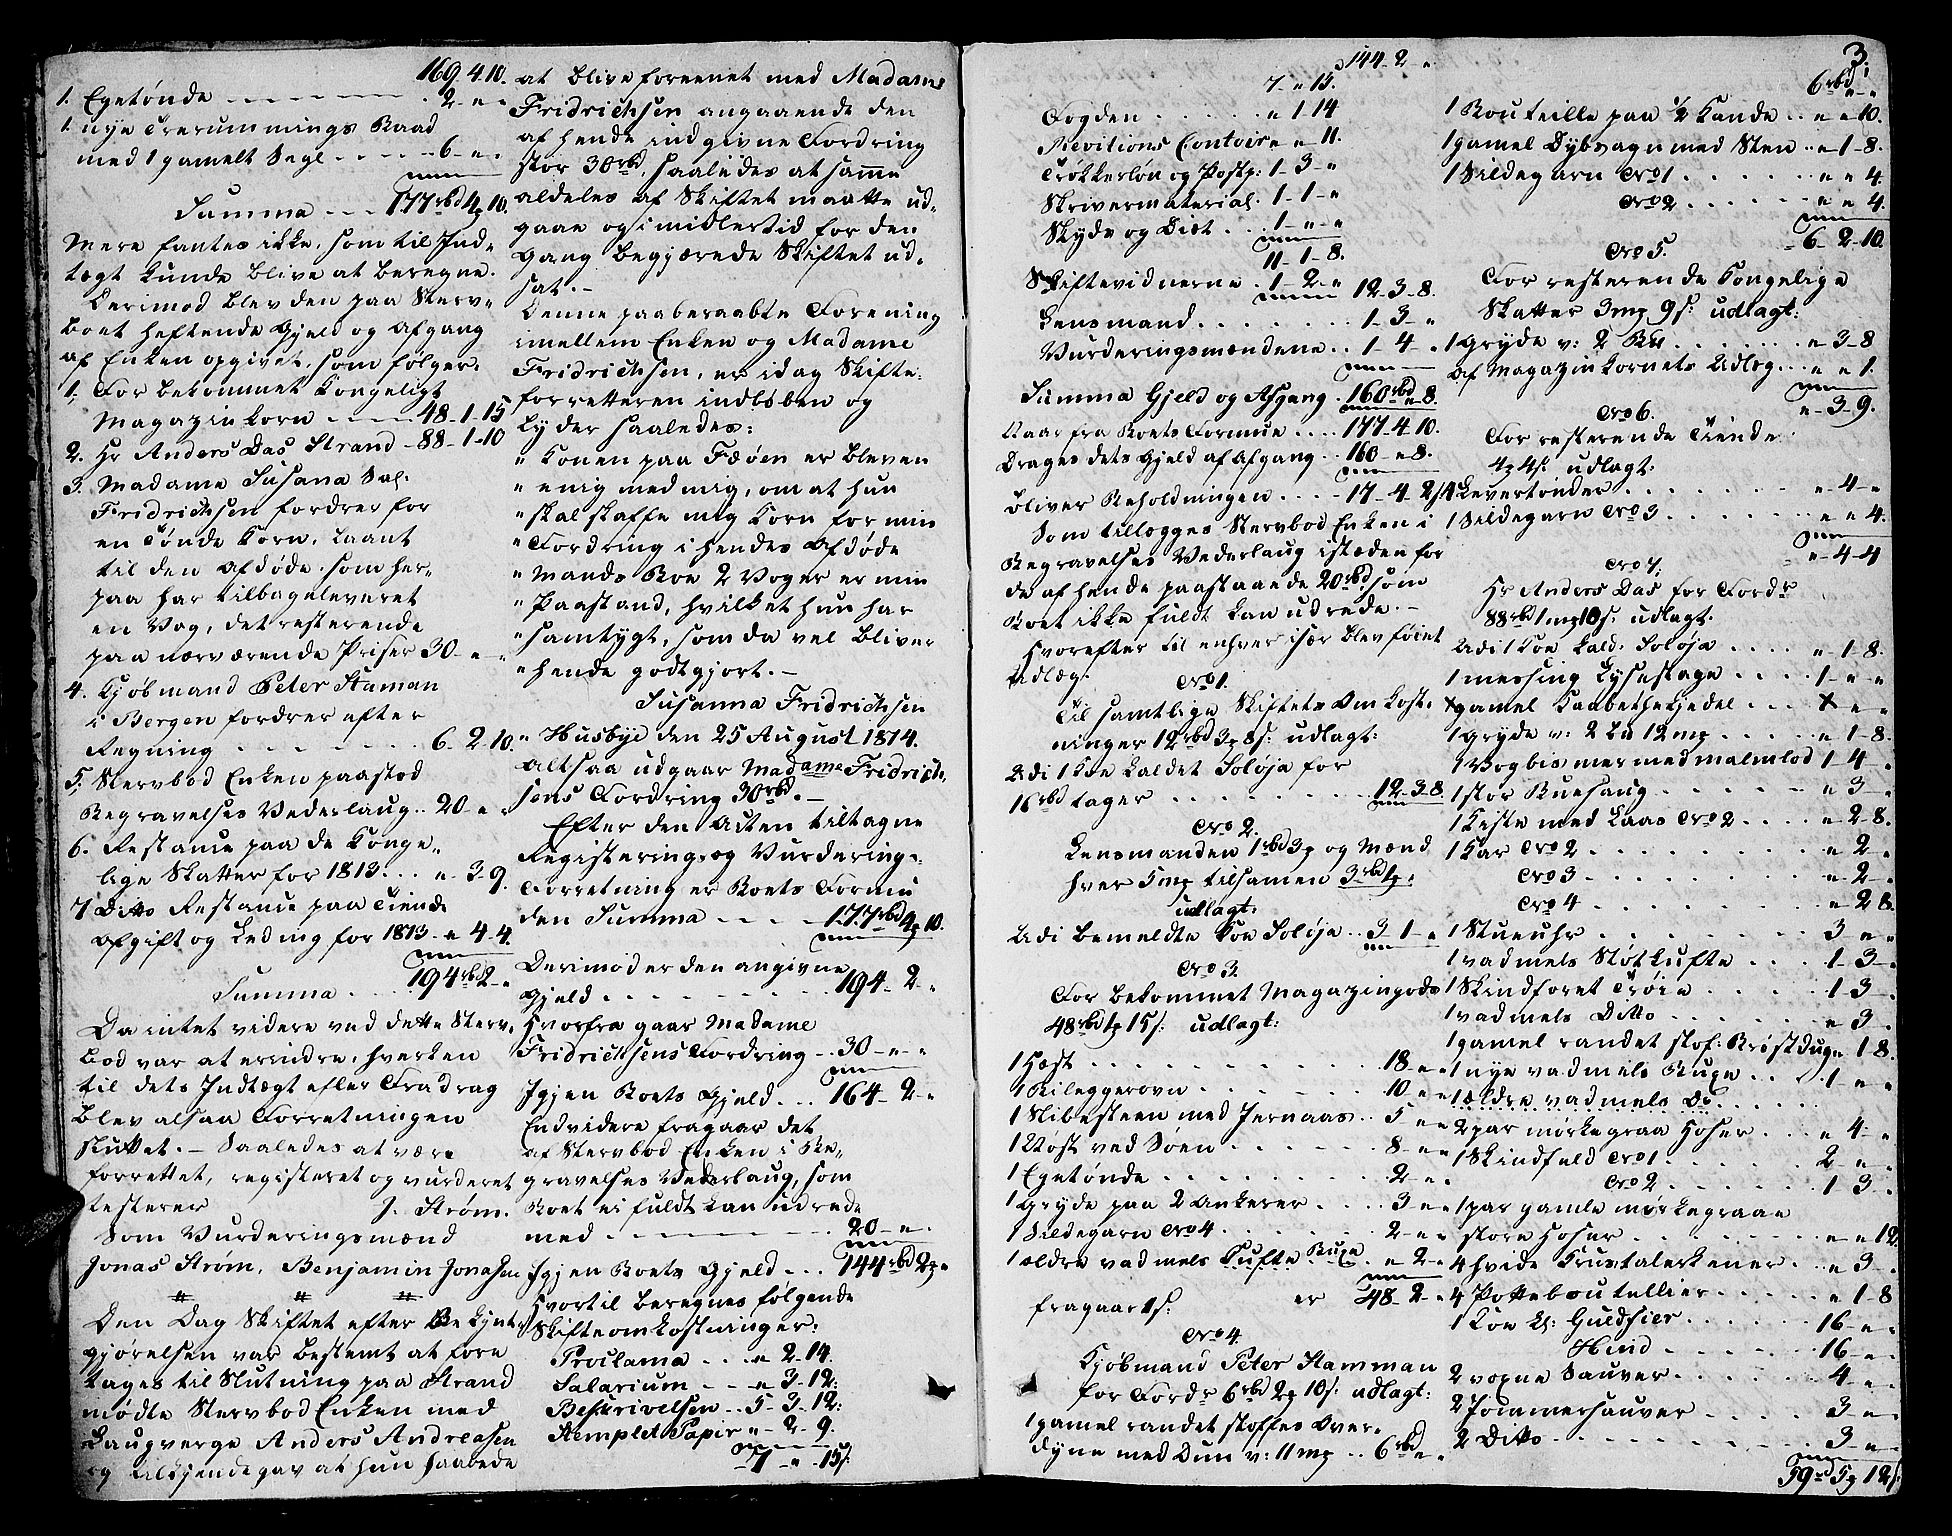 169. 4. 10.
1. Egetønde - - - - - . 2 - " - "
1. nye Trerummings Baad
med 1 gamelt Segl - - - - 6 - " -
Summa - - - 177 rbd 4 10.
Mere fantes ikke, som til Ind-
tægt kunde blive at beregne.
Derimod blev den paa Sterv-
boet heftende Gjeld og Afgang
af Enken opgivet, som følger:
1. For bekommet kongeligt
Magazinkorn - - - - 48 - 1 - 15
2. Hr Anders Das Strand - 88 - 1 - 10
3. Madame Susana Sal.
Fridrichsen fordrer for
en Tønde Korn, laant
til den afdøde, som her-
paa har tilbageleveret
en Vog, det resterende
paa nærværende Priser 30 - " - "
4. Kjøbmand Peter Haman
i Bergen fordrer efter
Regning - - - - - - 6 - 2 - 10.
5. Stervbod Enken paastod
Begravelses Vederlaug . . 20 - " - "
6. Restance paa de Konge-
lige Skatter for 1813 . . . " - 3 - 9.
7 Ditto Restance paa Tiende
afgift og Leding for 1813 - " - 4 - 4.
Summa . . . 194 rbd 2 - "
Da intet videre ved dette Sterv-
bod var at erindre, hverken
til dets Indtægt eller Fradrag
blev altsaa Forretningen
sluttet. - Saaledes at være
forrettet, registeret og vurderet
testerer J. Strøm.
Som Vurderingsmænd
Jonas Strøm, Benjamin Jonasen
Den Dag Skiftet efter Bekjynt-
gjørelsen var bestemt at fore
tages til Slutning paa Strand
mødte Stervbod Enken med
Laugverge Anders Andreasen
og tilkjendegav at hun haabede
at blive foreenet med Madame
Fridrichsen angaaende den
af hende indgivne Fordring
stor 30 rbd, saaledes at samme
aldeles af Skiftet maatte ud-
gaae og imidlertid for den
Gang begjærede Skiftet ud-
sat. -
Denne paaberaabte Forening
imellem Enken og Madame
Fridrichsen, er idag Skifte-
forretteren indløben og
lyder saaledes:
" Konen paa Fæøen er bleven
" enig med mig, om at hun
" skal skaffe mig Korn for min
" Fordring i hendes afdøde
" Mands Boe 2 Voger er min
" Paastand, hvilket hun har
" samtygt, som da vel bliver
" hende godtgjort. -
Susanna Fridrichsen
" Husbye den 25 August 1814.
Altsaa udgaar Madame Fridrich-
sens Fordring 30 rbd. -
Efter den Acten tiltagne
Registerings og Vurderings-
Forretning er Boets Formu
den Summa - - - - 177 rbd 4 10.
Derimod er den angivne
Gjeld . . . . . . . 194 - 2 - "
Hvorfra gaar Madame
Fridrichsens Fordring - . 30 - " - "
Igjen Boets Gjeld . . . 164 - 2 - "
Endvidere fragaar det
af Stervbod Enken i Be-
gravelses Vederlaug, som
Boet ei fuldt kan udrede
med . - - - - - - 20 - " -
Igjen Boets Gjeld . . . 144 rbd 2 "
Hvortil beregnes følgende
Skifteomkostninger:
Proclama . . . " - 2 - 14.
Salarium - - - " - 3 - 12:
Beskrivelsen . . 5 - 3 - 12:
Stemplet Papir " - 2 - 9.
7 - " - 15.
144 - 2 - "
7 - " 15.
Fogden . . . . . " 1 14
Revitions Contoir " " - 11.
Trøkkerløn og Postp: 1 - 3 - "
Skrivermaterial. . 1 - 1 - "
Skyds og Diet . . . 1 - " - "
11 - 1 - 8.
Skiftevidnerne . 1 - 2 - " 12 - 3 - 8.
Lensmand . . . . . . . 1 - 3 - "
Vurderingsmændene . . 1 - 4 - "
Summa Gjeld og Afgang . 160 rbd " 8.
Naar fra Boets Formue . . . . 177 - 4 10.
Drages dets Gjeld af Afgang . . 160 - " 8.
bliver Beholdningen . . . . 17 - 4 - 2
Som tillægges Stervbod Enken i
Begravelses Vederlaug isteden for
de af hende paastaaende 20 rbd som
Boet ikke fuldt kan udrede. -
Hvorefter til enhver især blev føiet
Udlæg. No 1.
Til samtlige Skiftets Omkost-
ninger 12 rbd 3 8 s. udlagt:
Udi 1 Koe kaldet Soløja for
16 rbd tager . . . . . . . 12 - 3 8
No 2.
Lensmanden 1 rbd 3 og Mænd
hver 5 mp tilsamen 3 rbd 1
udlagt:
Udi bemeldte Koe Soløja . . 3 1 - "
No 3.
For bekommet Magazingods
48 rbd 1 15 s. udlagt:
1 Hest . . . . . . . . . . 18 - " "
1 Bileggerovn . . . . . . 10 - " "
1 Slibesteen med Jernaas . . 5 - " "
1 Nost ved Søen . . . . . 8 - " "
1 Egetønde . . . . . . . . 2 - " "
1 Gryde paa 2 Ankerer . . . . 3 " "
1 Sildegarn No 4 . . . . . . 2 - " "
1 ældre vadmels Kufte Buxe . " 2 - "
er 48 - 2 - "
fragaar 1 s:
No 4.
Kjøbmand Peter Hamman
for Fordr 6 rbd 2 10 s. udlagt:
1 gamel randet stoffes Over-
dyne med Dun v: 11 mp . . 6 rbd " "
3.
6 rbd " "
1 Bouteille paa 1/2 Kande . . " " 10.
1 gamel Dybsagn med Sten . . " 1 - 8.
1 Sildegarn No 1 . . . . . . " " 4.
No 2 . . . . . . " " 4.
6 - 2 - 10.
No 5.
For resterende Kongelige
Skatter 3 mp 9 s: udlagt:
1 Gryde v: 2 . . . . . . " 3 - 8
af Magazin Kornets Udlæg . . . " " 1.
" - 3 - 9.
No 6.
For resterende Tiende
4 4 s. udlagt.
4 Levertønder . . . . . . . " - 4 - "
1 Sildegarn No 3 . . . . . . " " 4.
" - 4 - 4
No 7.
Hr Anders Das for Fordr
88 rbd 1 mp 10 s. udlagt.
Udi 1 Koe kald. Soløja . . . . " - 1 - 8.
1 messing Lysestage . . . . 1 - " - "
gamel Kaabethekjedel . . . " "
1 Gryde v: 2 12 mp . . . . " 1 - 8.
1 Vogbismer med malmlod 1 - 4 - "
1 stor Buesaug . . . . . . " 3 - "
1 Kiste med Laas No 2 . . . . " - 2 - 8.
1 Kar No 2 . . . . . . . . " 2 - "
No 3 . . . . . . . . . " - 2 - "
No 4 . . . . . . . . " 2 8.
1 Stueuhr . . . . . . . . 3 - " "
1 vadmels Støtkufte . . . . 1 - 3 - "
1 Skindforet Trøie . . . . . 1 3 - "
1 vadmels Ditto . . . . . . " - 3 - "
1 gamel randet stof: Brøstdug " 1 - 8.
1 nye vadmels Buxe . . . 1 - " - "
1 ældre vadmels Do . . . . .
2 par mørkegraa Hoser . . . " 4 - "
1 Skindfeld No 1 . . . . . . 2 - " - "
No 2 . . . . . . . 1 3 - "
1 par gamle mørkegraae
store Hoser . . . . . . . " - " 12
4 hvide Krustalerkener . . . " 3 - "
4 Pottebouteillier . . . . . " 1 - 8
1 Koe kl: Guldsier . . . . . 16 - " - "
Hind . . . . . . . 16 - " - "
2 voxne Sauver . . . . . 4 - " - "
2 Sommersauver . . . . 3 - " - "
2 Ditto . . . . . . . . . . 3 - " - "
59 rd 5 12 s.